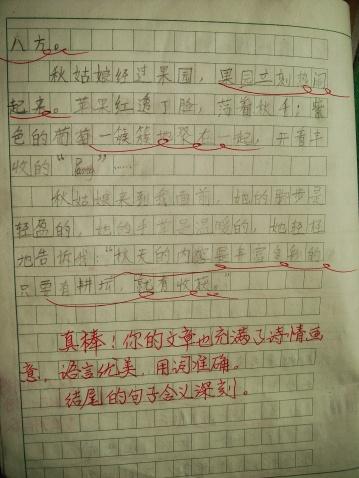 八方。
秋姑娘经过果园,果园立刻热闹
起来。苹果红透了脸,荡着秋千;紫
色的葡萄一簇簇地聚在一起,开着丰
收的“Party”……
秋姑娘来到我面前,她的脚步是
轻盈的,她的手是温暖的,她轻轻
地告诉我:“秋天的内涵是丰富多彩的
只要有耕耘,就有收获。”
真棒!你的文章也充满了诗情画
意,语言优美,用词准确。
结尾的句子含义深刻。